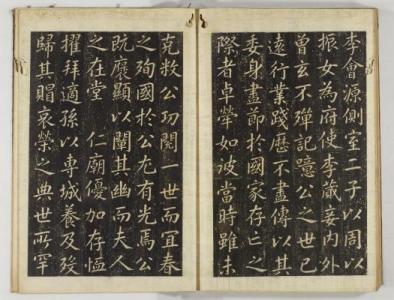 李會源側室二子以周以
振女為府使李蕆妾內外
曾玄不殫記噫公之世已
遠行業踐歷不盡傳以其
委身盡節於國家存亡之
際者卓犖如彼當時雖未
克救公功閱一世而冝春
之殉國於公尤有光焉公
既褒顯以闡其幽而夫人
之在堂 仁廟優加存恤
擢拜適孫以專城養及歿
歸其賵哀榮之典世所罕